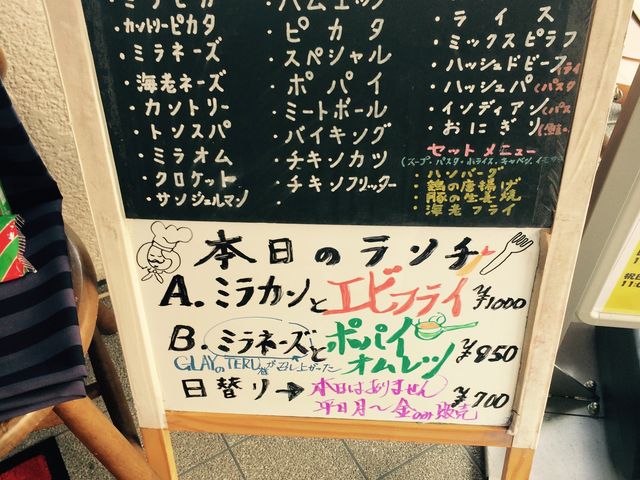 ・ミラピカ
・カントリーピカタ
・ミラネーズ
・海老ネーズ
・カントリー
・トンスパ
・ミラオム
・クロケット
・サンジェルマン
・ハムエッグ
・ピカタ
・スペシャル
・ポパイ
・ミートボール
・バイキング
・チキンカツ
・チキンフリッター
・
・ライス
・ミックスピラフ
・ハッシュドビーフ(ライ
・ハッシュパ(パスタ
・インディアン(パス
・おにぎり(鮭・
セットメニュー
(スープ、パスタ・小ライス、キャベツ、
・ハンバーグ
・鶏の唐揚げ
・豚の生姜焼
・海老フライ
本日のランチ
A. ミラカンとエビフライ ¥1000
B. ミラネーズとポパイオムレツ ¥850
GLAYのTERU様が召し上がった
日替り→本日はありません ¥700
平日月〜金のみ販売